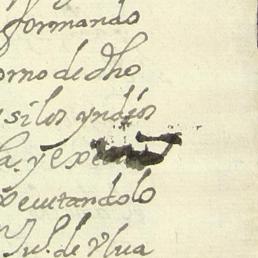 formando
orno de dho
si los yndios
la. y exe
executandolo
Jul. de Ulua